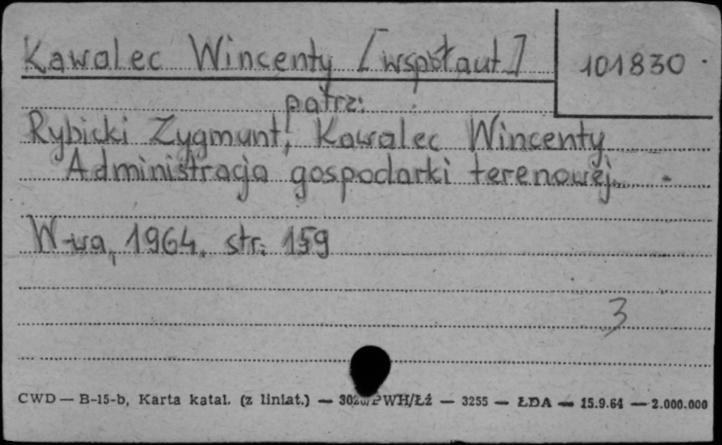 Kawalec Wincenty [wspołaut.] 101830
patrz:
Rybicki Zygmunt, Kawalec Wincenty
Administracja gospodarki terenowej.
W-wa, 1964. str. 159
3
CWD — B-15-b, Karta katal. (z liniat.) — PWH/Łź — 3255 — ŁDA — 15.9.64 — 2.000.000